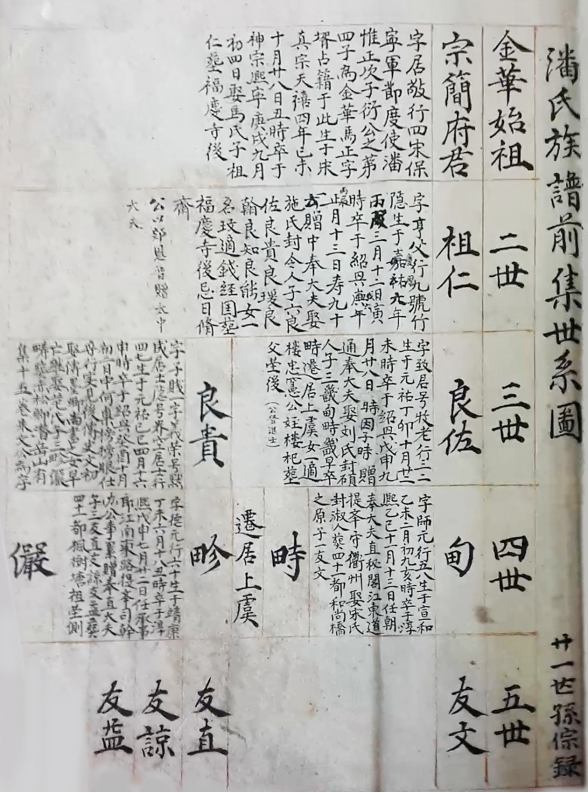 潘氏族譜前集世系圖
廿一世孫倧録
金華始祖
二世
三世
四世
五世
宗簡府君
字居敬行四宋保
寧軍節度使潘
惟正次子衍公之第
四子高金華馬正字
壻占籍于此生于宋
真宗天禧四年己未
十月廿八日丑時卒于
神宗熙寧庚戌九月
初四日娶馬氏子祖
仁塟福慶寺後
祖仁
字亨父行九號行
隱生于嘉祐九年
丙
三月十二日寅
時卒于紹興
年
正月十二日寿九十
贈中奉大夫娶
施氏封令人子六良
佐良貴良瑗良
翰良知良能女二
名玟適錢経国塟
福慶寺後忌日脩
齋
公以郎恩皆贈太中
大夫
良佐
字致君号牧老行三二
生于元祐丁卯十月廿二
未時卒于紹興戊申九
月廿八日時因子時贈
通奉大夫娶刘氏封碩
人子三畿甸時畿早卒
時遷居上虞女適
樓忠憲公妣樓祀塟
父坐後
良貴
字子賤一字義榮号黙
成居士
四七生于元祐己巳四月十六
申時卒于紹興癸酉十月
初
集十五卷朱文公為序
甸
字師元行五八生于宣和
乙未二月初九亥時卒于淳
熙乙巳十二月十三日任朝
奉大夫直秘閣江東道
提舉守衢州娶宋氏
封淑人塟四十一都和尚橋
之原子一友文
時
遷居上虞
畛
字德元行六十生于靖康
丁未六月十一丑時卒于淳
熙戊申七月廿二日任承事
郎江南東路提舉司幹
办公事累贈奉直大夫
子三友直友諒友益塟
四十一都楓樹塘祖塋側
儼
友文
友直
友諒
友益